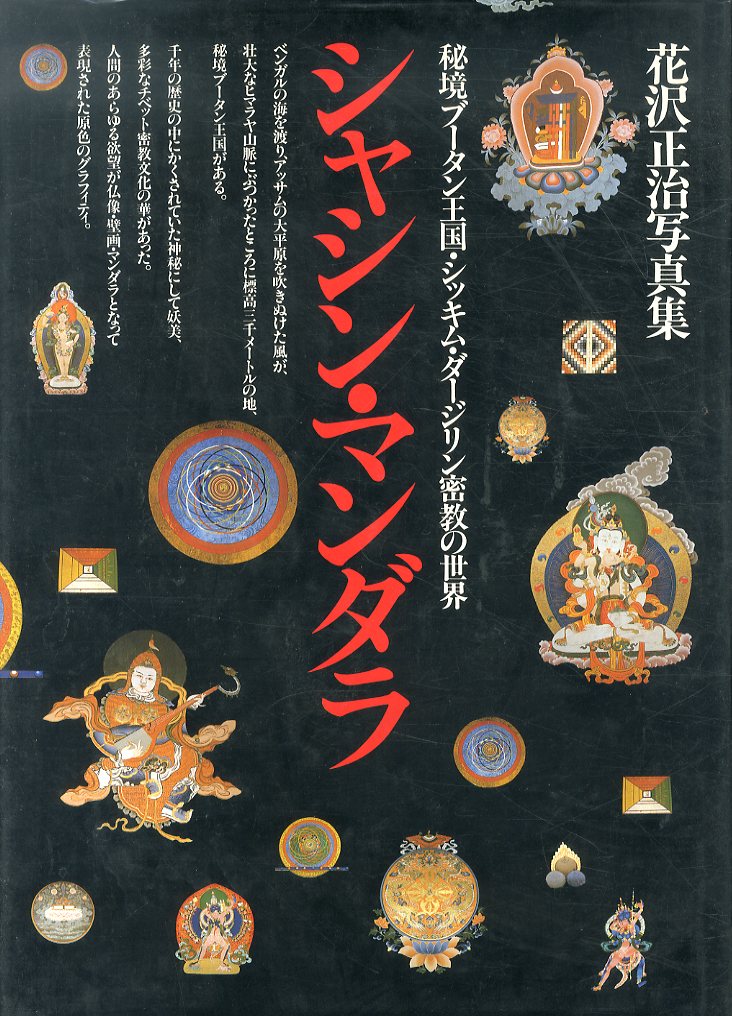 花沢正治写真集
秘境ブータン王国・シッキム・ダージリン密教の世界
シャシン・マンダラ
ベンガルの海を渡り、アッサムの大平原を吹きぬけた風が、
壮大なヒマラヤ山脈にぶつかったところに標高三千メートルの地、
秘境ブータン王国がある。
千年の歴史の中にかくされていた神秘にして妖美、
多彩なチベット密教文化の華があった。
人間のあらゆる欲望が仏像・壁画・マンダラとなって
表現された原色のグラフィティ。